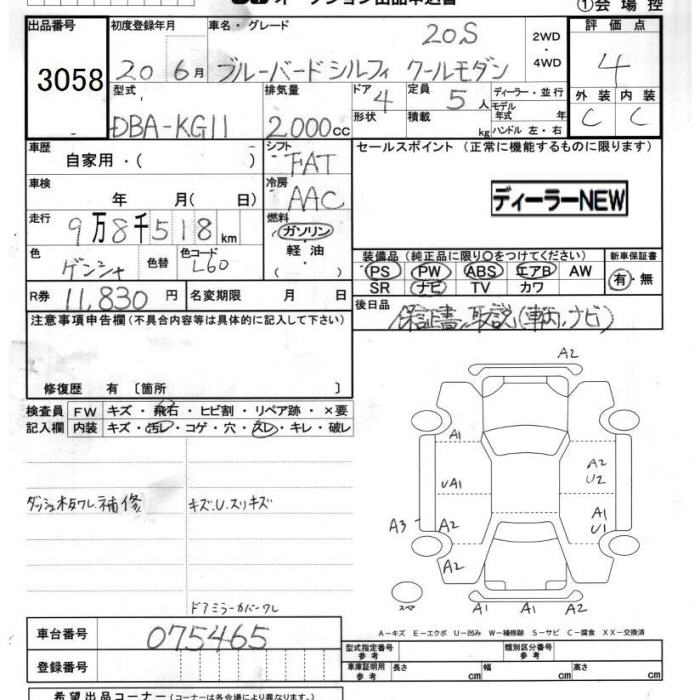 オークション出品申込書
①会場控
出品番号 初度登録年月 車名・グレード 評価点
3058 20年6月 ブルーバードシルフィ 20S クールモダン 2WD・4WD 4
型式 排気量 ドア 定員 ディーラー・並行 外装 内装
DBA-KG11 2000cc 4 5人 モデル年式 年 C C
形状 積載 kg ハンドル 左・右
車歴 シフト セールスポイント (正常に機能するものに限ります)
自家用・( ) FAT
車検 冷房
年 月( 日) AAC ディーラーNEW
走行 燃料
9万8千518km ガソリン
軽油
・( )
色 色替 色コード 装備品(純正品に限り○をつけてください) 新車保証書
L60 PS PW ABS エアB AW 有・無
SR ナビ TV カワ
R券 11,830円 名変期限 月 日 後日品
保証書、取説(車両、ナビ)
注意事項申告欄(不具合内容等は具体的に記入して下さい)
修復歴 有 〔箇所 〕
検査員 FW キズ・飛石・ヒビ割・リペア跡・×要
記入欄 内装 キズ・汚レ・コゲ・穴・スレ・キレ・破レ
ダッシュ板ワレ補修 キズ、U、スリキズ
ドアミラーカバーワレ
A2
A1
A2
UA1 U2
A1
A3 A2 U1
A2
スペア A1 A1 A2
A-キズ E-エクボ U-凹み W-補修跡 S-サビ C-腐食 XX-交換済
車台番号 075465
型式指定番号 参考 類別区分番号 参考
登録番号
車庫証明用 参考 長さ cm 幅 cm 高さ cm
希望出品コーナー(コーナーは各会場により異なります。)